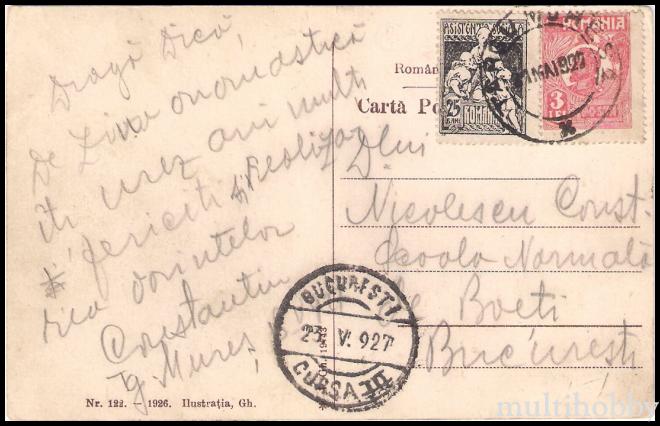 Dragă Dică,
De Ziua onomastică
îți urez ani mulți
fericiți și realiza-
rea dorintelor
Constantin
Tg Mureș
Român
Carta Po
ASISTENȚA
25
BANI
ROMANIA
ROMANIA
3
LEI
MAI 927
Dlui
Nicolescu Const.
Școala Normală
de Boeti
București
BUCUREȘTI
23 V. 927
CURSA III
Nr. 122. - 1926. Ilustrația, Gh.
multihobby